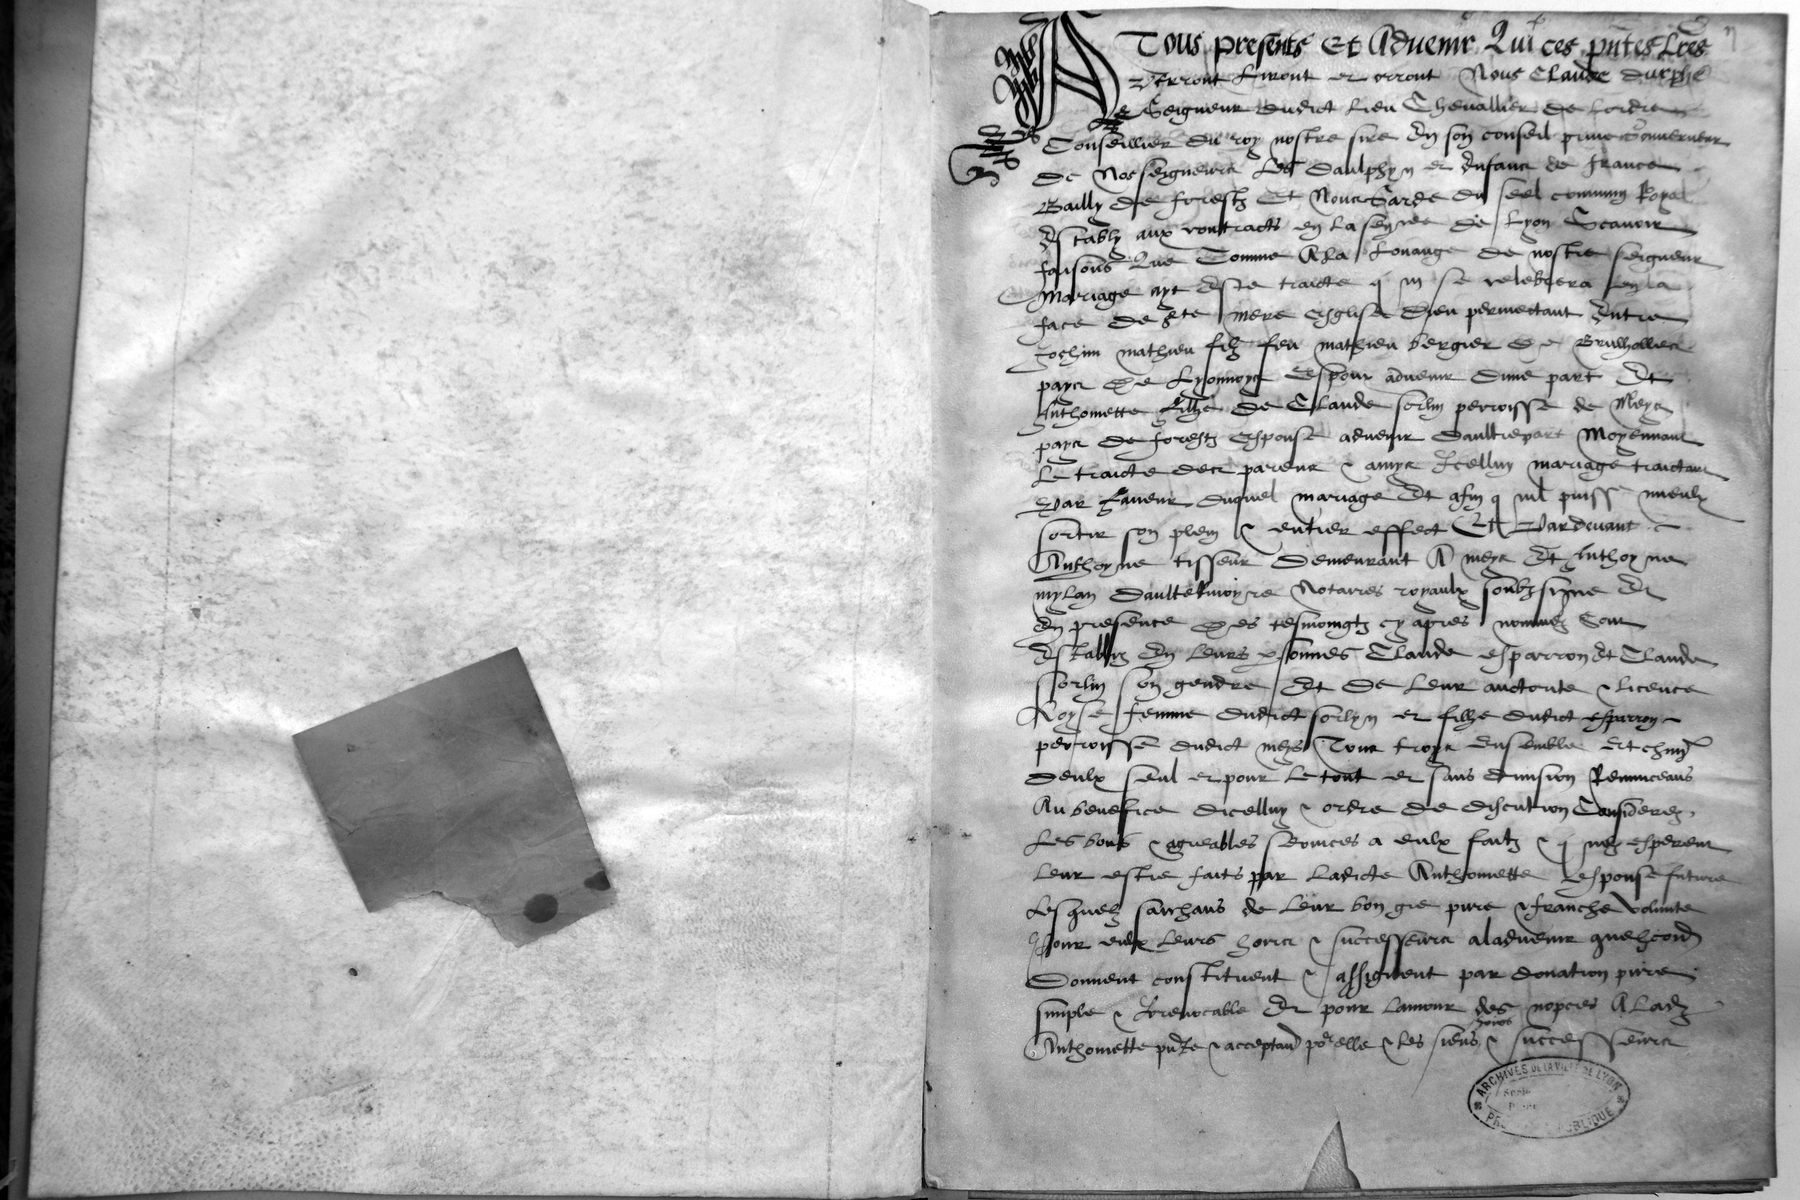 A Tous presents Et Advenir Qui ces pntes Lres
Verront Liront et orront Nous Claude durphe
Seigneur dudict Lieu Chevallier de Lordre
Conseillier du roy nostre sire En son conseil prive Gouverneur
De Nosseigneurs Les Daulphyn et Enfans de france
Bailly de forestz Et Nous Garde du seel commun Royal
Estably aux contracts en la de Lyon Scavoir
faisons Que Comme A la Louange de nostre seigneur
Mariage ayt Este traicte q se celebrera en la
face de ste mere Esglise Dieu permettant Entre
mathieu filz feu mathieu bergier de
pays de Lyonnoys Espoux advenir dune part Et
Anthomette filhe de Claude sorlin perroisse de Meys
pays de forestz Espouse advenir daultrepart Moyennant
Le traicte des parens & amys Icelluy mariage traictans
Par faveur duquel mariage Et afin q puisse mieulx
sortir son plein & entier effect Et Pardevant
Anthoyne tisseur Demeurant A meys Et Anthoyne
mylan Notaires royaulx soubzsigne Et
En presence des tesmoingtz cy apres nommez Sont
Establiz En Leurs psonnes Claude esparron et Claude
sorlin son gendre Et de Leur auctorite & licence
femme dudict sorlyn et filhe dudict esparron
perroisse dudict meys Tous troys ensemble et chun
deulx seul et pour Le tout et sans division Renunceans
Au benefice dicelluy & ordre de discution Considerez
Les bons & agreables services a eulx faictz & q esperent
Leur estre faits par Ladicte Anthomette espouse future
Lesquelz saichans de Leur bon gre pure & franche volunte
Pour eulx Leurs hoirs & successeurs aladvenir quelzconqs
Donnent constituent & assignent par donation pure
simple & Irrevocable Et pour Lamour des nopces A Lad
hoirs
Anthomette pnte & acceptand por elle & les siens & successeurs
ARCHIVES DE LA VILLE DE LYON